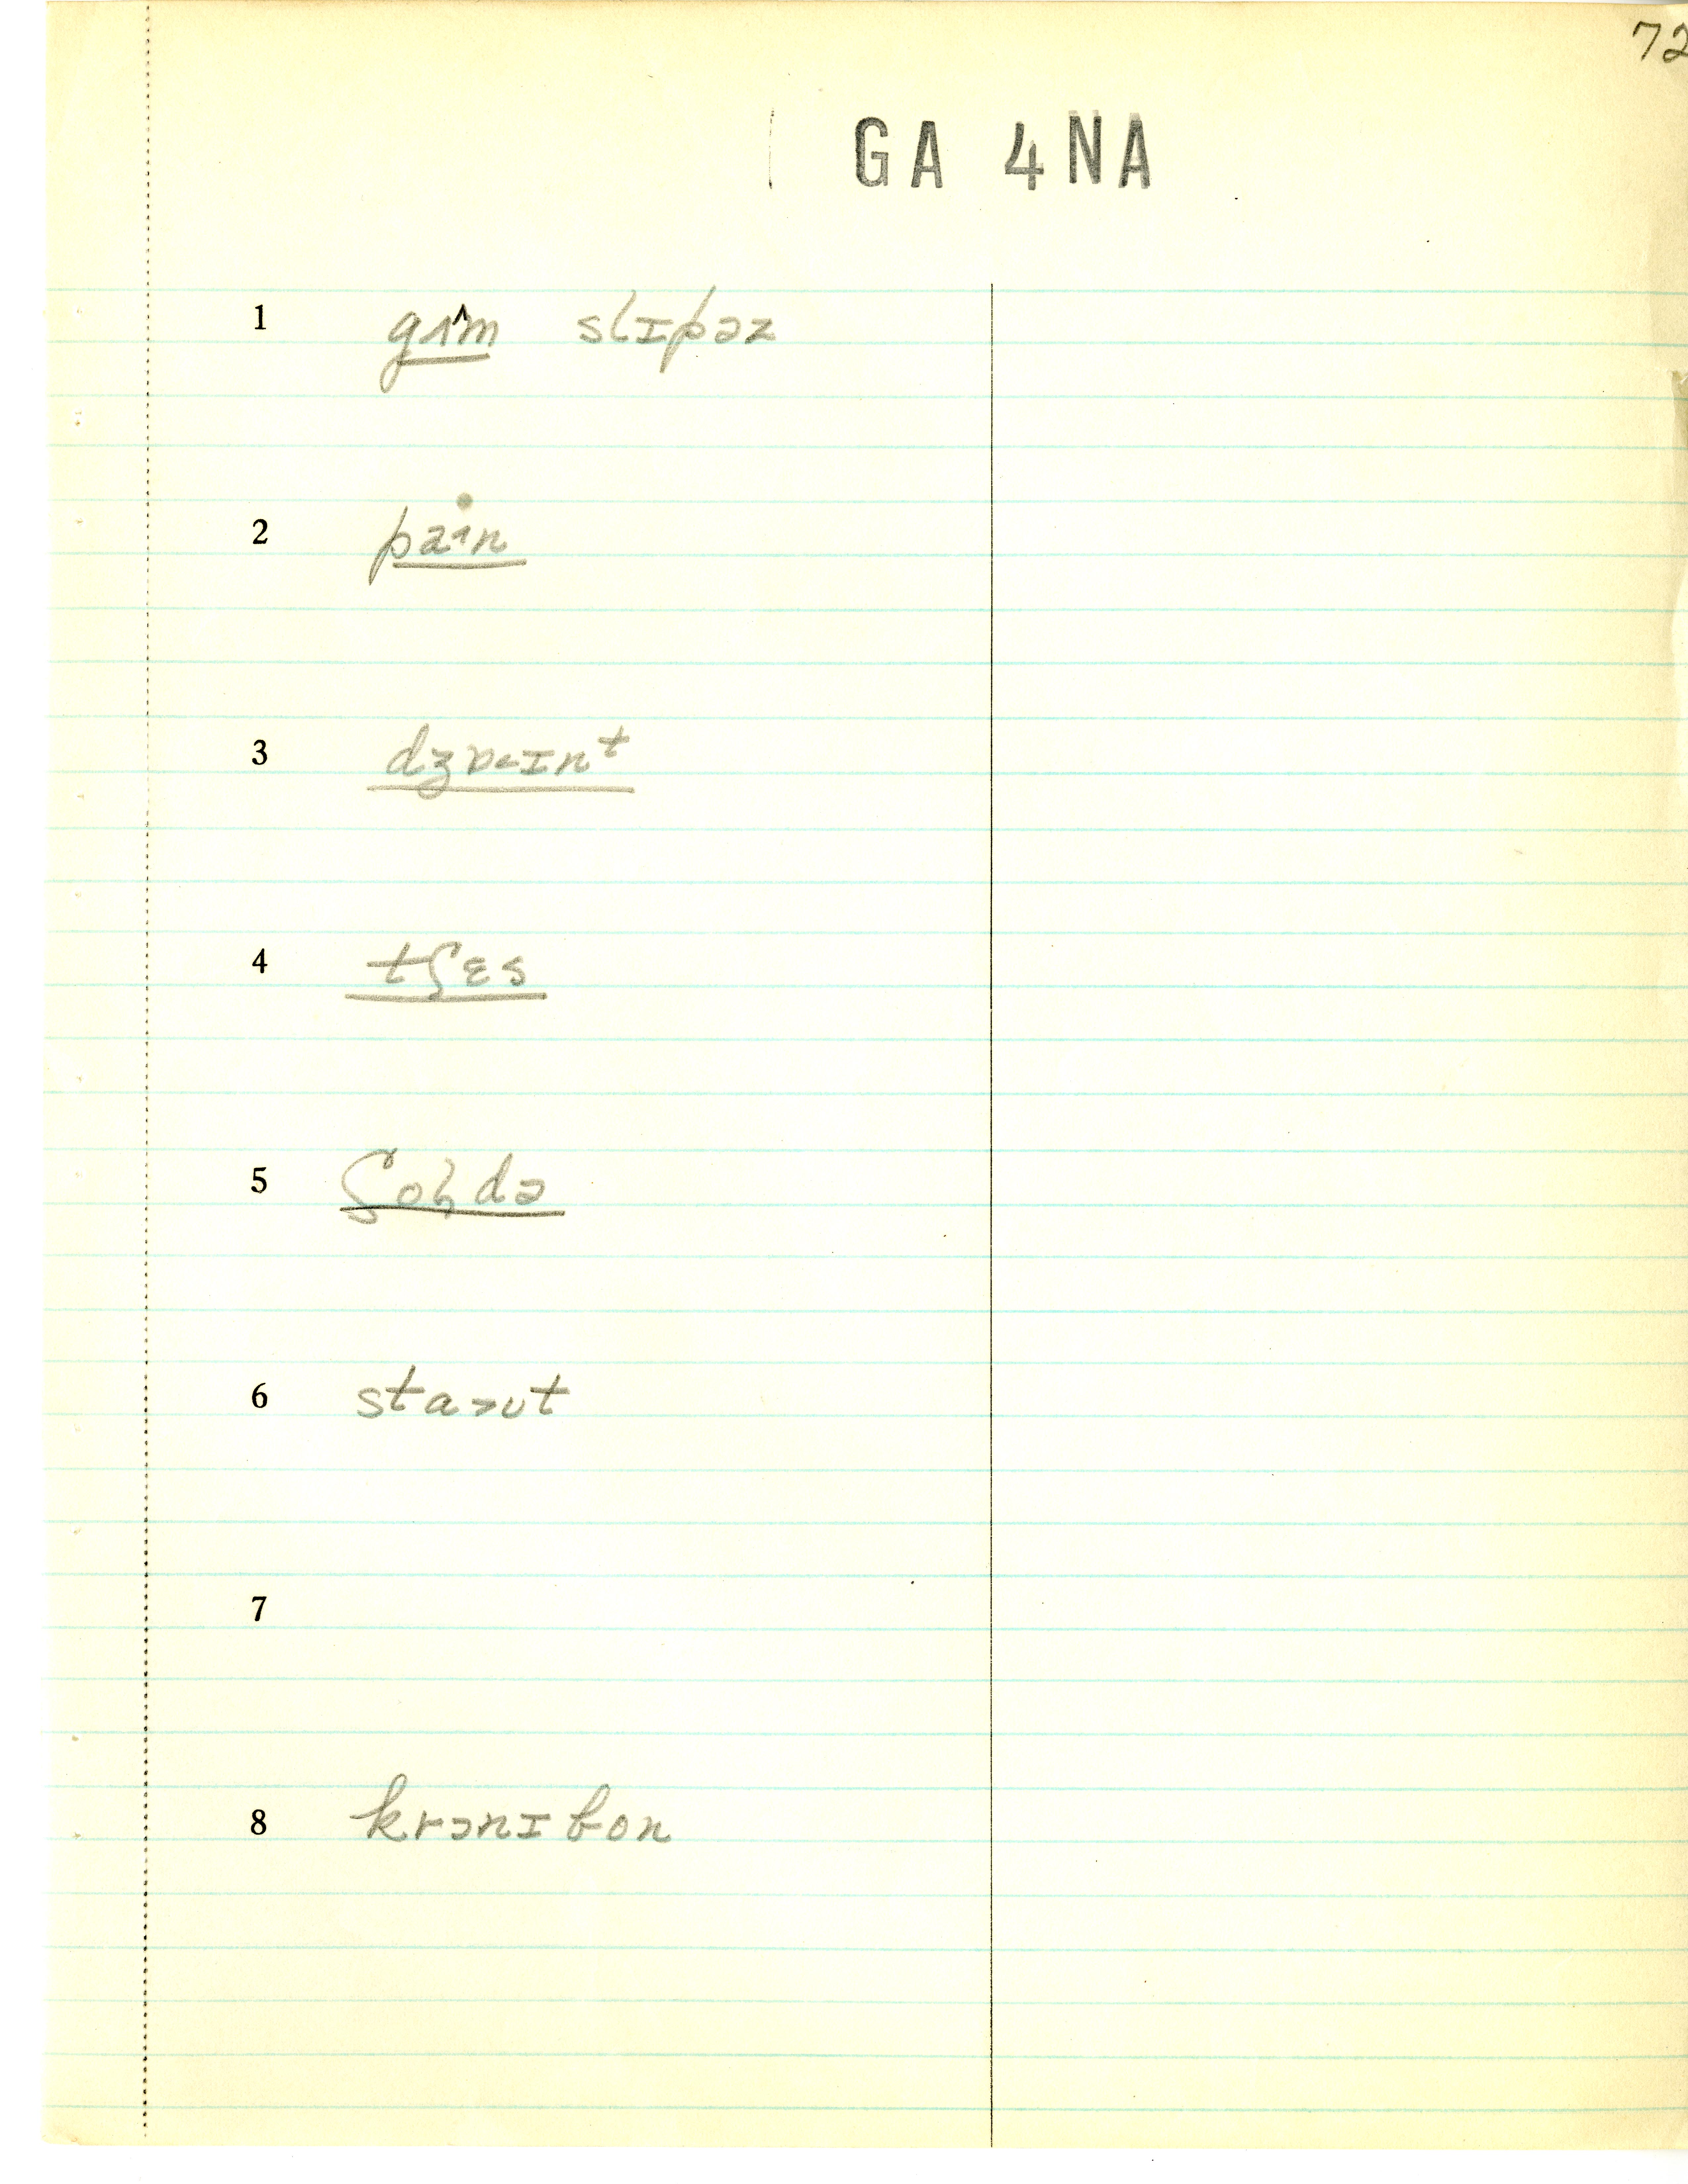 72
GA 4NA
1 gʌ^m slɪpəz
2 pa˔ɪn
3 dʒɒ˂ɪnᵗ
4 tʃɛs
5 ʃoɫdə
6 sta˃ʊt
7
8 krɔnɪ bon